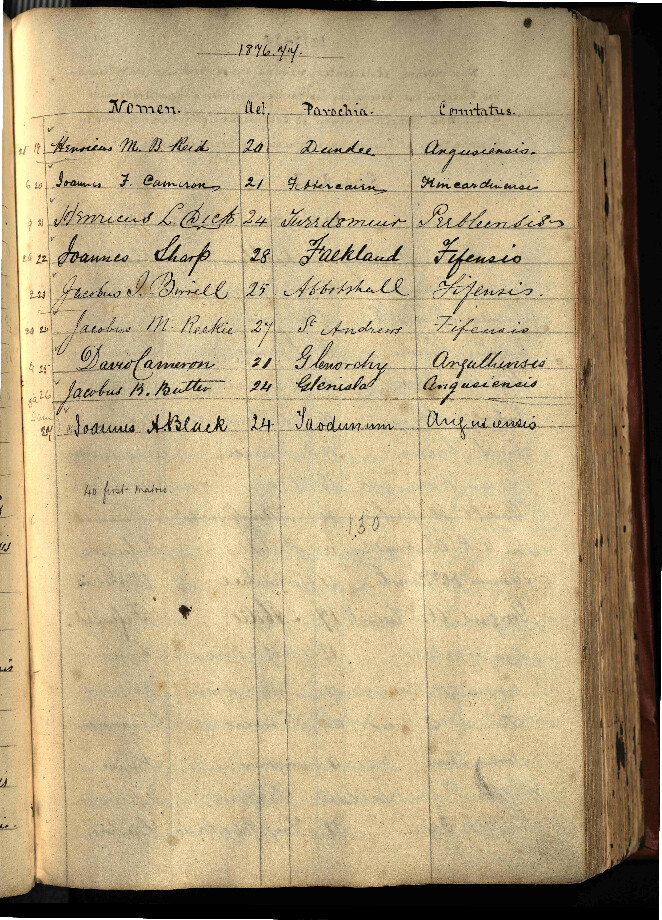 1876.77.
Nomen. Aet. Parochia. Comitatus.
19 Henricus M. B. Reid 20 Dundee Angusiensis.
6 20 Joannes F. Cameron 21 Fettercairn Kincardinensis
9 21 Henricus L. Dick 24 Peebleensis
22 Joannes Sharp 28 Falkland Fifensis
2 23 Jacobus J. Birrell 25 Abbotshall Fifensis.
20 24 Jacobus M. Reekie 27 St Andrews Fifensis
4 25 David Cameron 21 Glenorchy Argathensis
26 Jacobus B. Butter 24 Glenisla Angusiensis
27 Joannes A. Black 24 Taodunum Angusiensis
40 first matric.
130